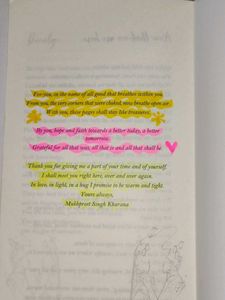 For you, in the name of all good that breathes within you.
From you, the very corners that were choked, now breathe open air.
With you, these pages shall stay like treasures.
By you, hope and faith towards a better today, a better
tomorrow.
Grateful for all that was, all that is and all that shall be.
Thank you for giving me a part of your time and of yourself.
I shall meet you right here, over and over again.
In love, in light, in a hug I promise to be warm and tight.
Yours always,
Mukhpreet Singh Khurana